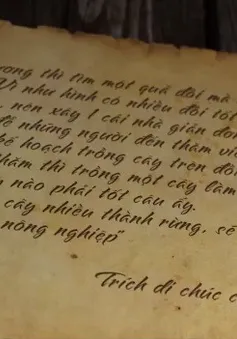 ương thì tìm một quả đồi mà
Vì như hình có nhiều đồi tốt
, nên xây 1 cái nhà giản đơn
để những người đến thăm viế
kế hoạch trồng cây trên đồi
thăm thì trồng một cây làm
nào phải tốt câu ấy.
cây nhiều thành rừng, sẽ
nông nghiệp"
Trích di chúc c